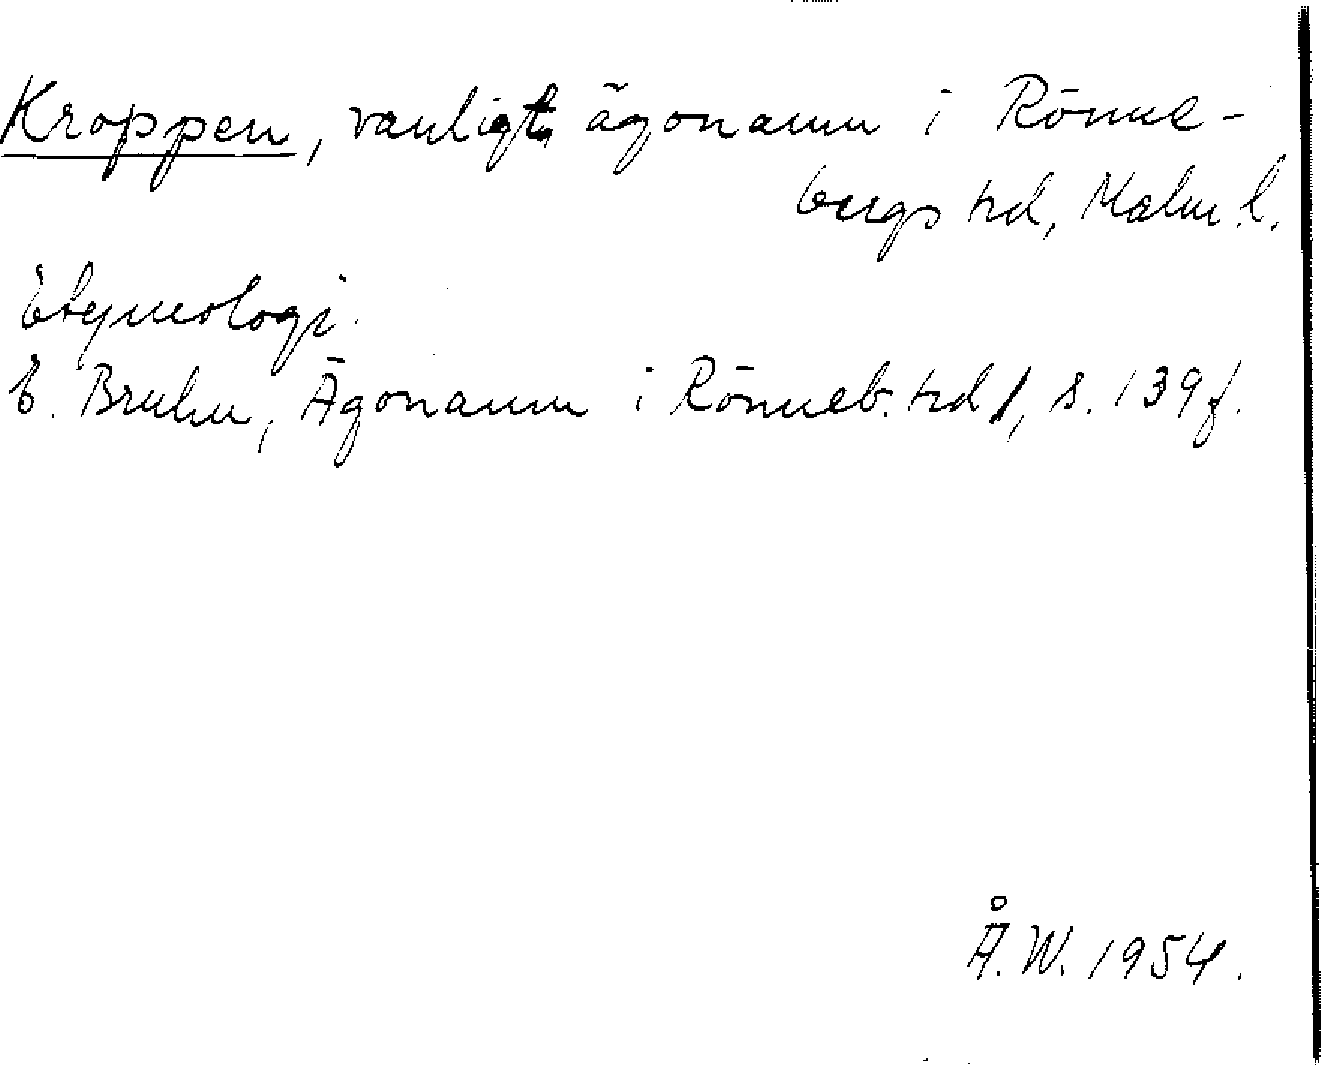 Kroppen, vanligt ägonamn i Rönne-
bergs hd, Malm. l.
Etymologi.
E. Bruhn, Ägonamn i Rönneb. hd 1, s. 139 f.
Å. W. 1954.